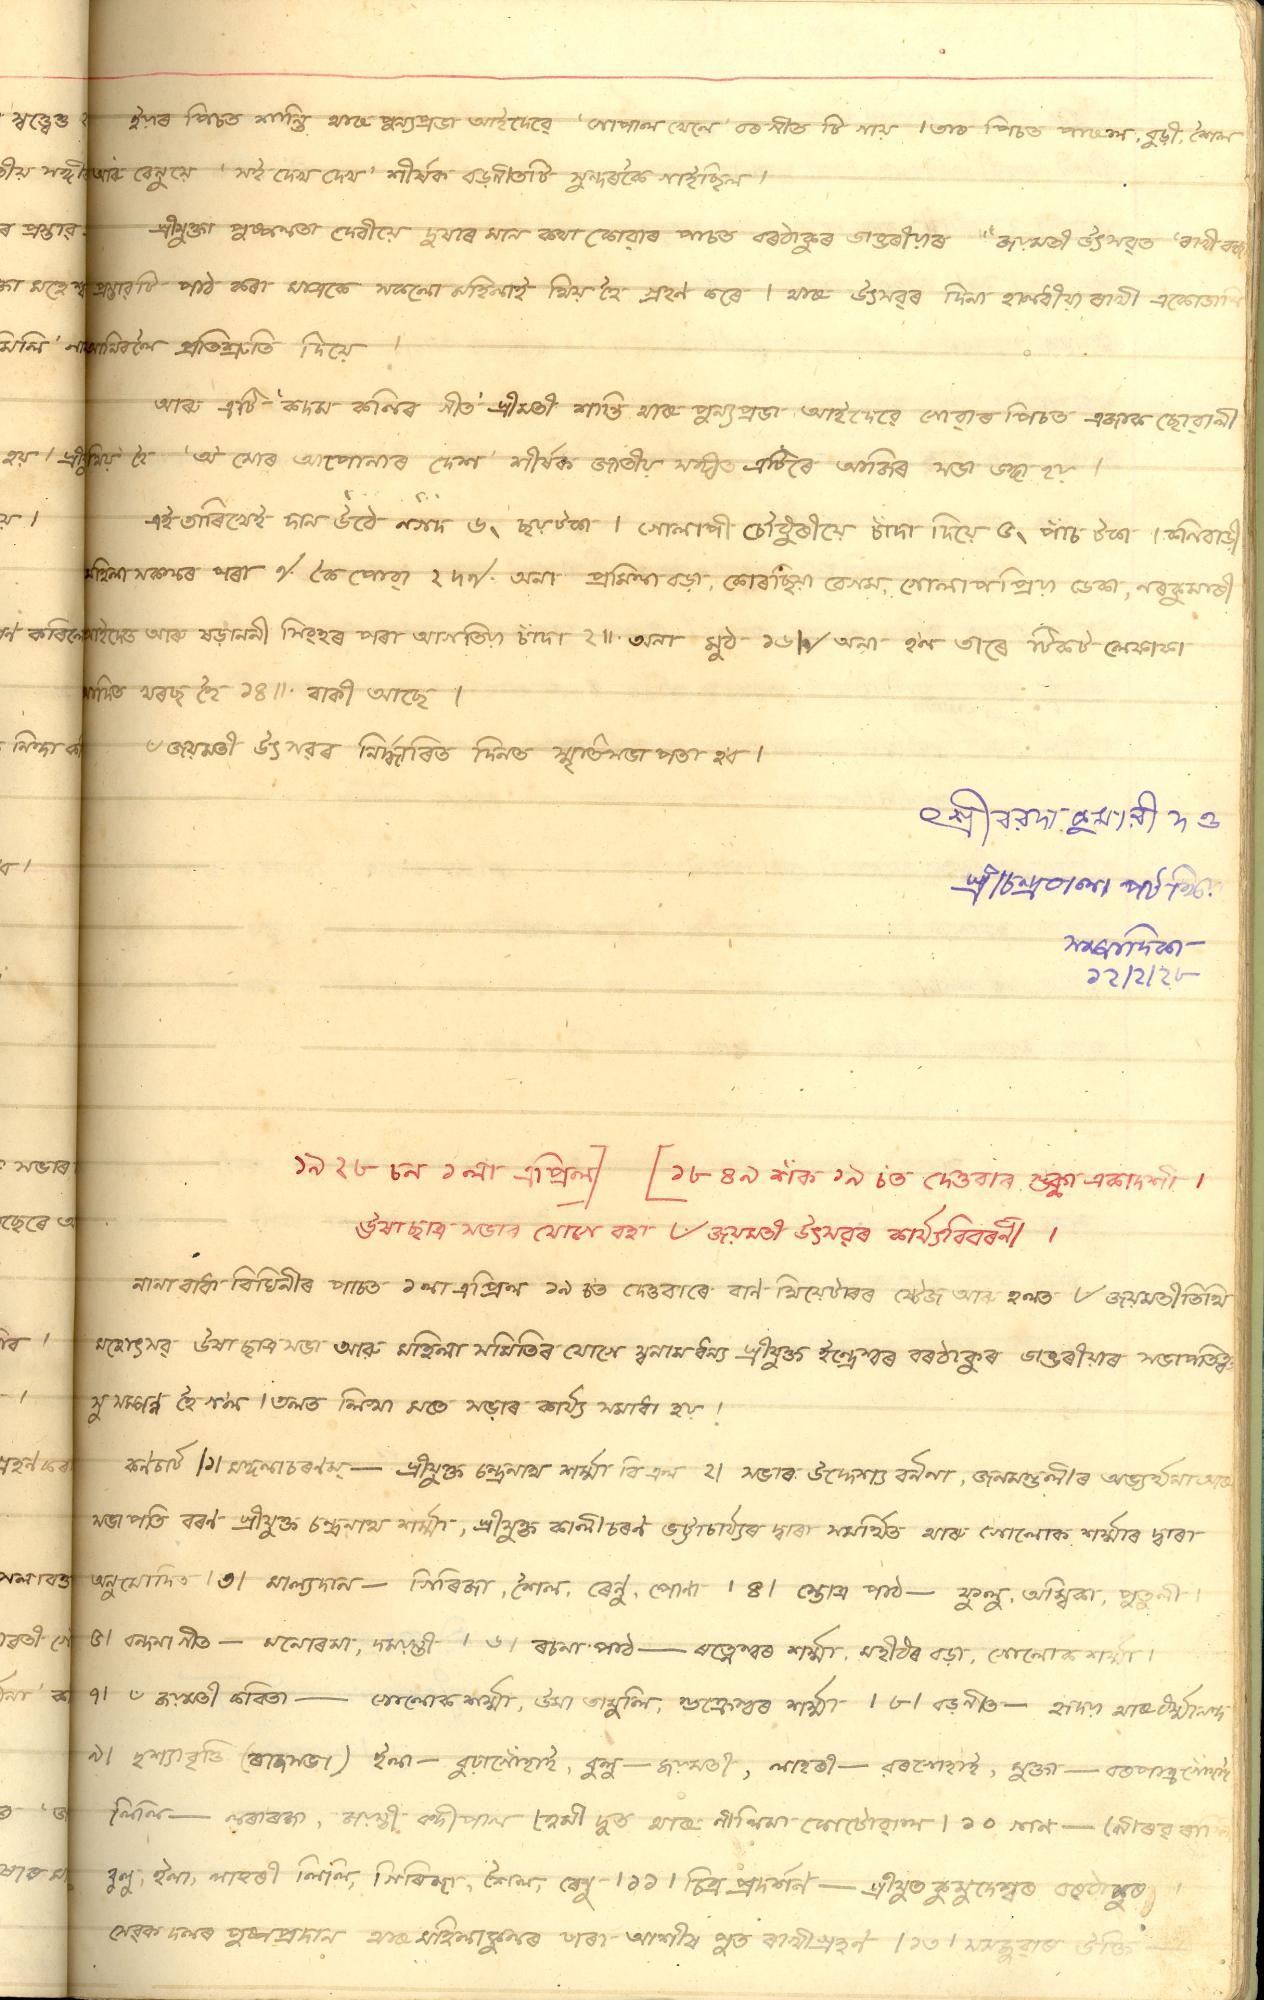 ইয়াৰ পিচত শান্তি আৰু পুন্যপ্ৰভা আইদেৱে 'গোপাল খেলে' বৰগীত টি গায় । তাৰ পিচত পাৰুল, বুড়ী, শৈল
আৰু ৰেনুয়ে 'সই দেখ দেখ' শীৰ্ষক বড়গীতটি সুন্দৰকৈ গাইছিল ।
শ্ৰীযুক্তা পুষ্পলতা দেৱীয়ে দুষাৰ মান কথা কোৱাৰ পাচত বৰঠাকুৰ ডাঙৰীয়াৰ "জয়মতী উৎসৱত 'ৰাখী বন্ধন
প্ৰস্তাৱটি পাঠ কৰা মাত্ৰকে সকলো মহিলাই থিয় হৈ গ্ৰহণ কৰে । আৰু উৎসৱৰ দিনা হালধীয়া ৰাখী একোডাল
আনিবলৈ প্ৰতিশ্ৰুতি দিয়ে ।
আৰু এটি 'কদম কলিৰ গীত' শ্ৰীমতী শান্তি আৰু পুন্যপ্ৰভা আইদেৱে গোৱাৰ পিচত এজাক ছোৱালী
থিয় হৈ 'অ' মোৰ আপোনাৰ দেশ' শীৰ্ষক জাতীয় সঙ্গীত এটিৰে আজিৰ সভা ভঙ্গ হয় ।
এই তাৰিখেই দান উঠে নগদ ৬৲ ছয়টকা । গোলাপী চৌধুৰীয়ে চাঁদা দিয়ে ৫৲ পাঁচ টকা । কলিবাড়ী
মহিলা সকলৰ পৰা কৈ পোৱা অনা প্ৰমিলা বড়া, কোৰছিয়া বেগম, গোলাপপ্ৰিয়া ডেকা, নৰকুমাৰী
আইদেও আৰু ষড়াননী সিংহৰ পৰা আগতিয়া চাঁদা ২॥ অনা মুঠ অনা হল তাৰে টিকট লেফাফা
আদিত খৰছ হৈ ১৪॥ বাকী আছে ।
৺জয়মতী উৎসৱৰ নিৰ্দ্ধাৰিত দিনত স্মৃতিসভা পতা হব ।
শ্ৰী বৰদা কুমাৰী দত্ত
শ্ৰীচন্দ্ৰবালা
সম্পাদিকা
১২/২/২৮
১৯২৮ চন ১লা এপ্ৰিল] [১৮৪৯ শঁক ১৯ চত দেওবাৰ শুক্লা একাদশী ।
উষা ছাত্ৰ সভাৰ যোগে বহা ৺জয়মতী উৎসৱৰ কাৰ্য্যবিবৰনী ।
নানা বাধা বিঘিনীৰ পাচত ১লা এপ্ৰিল ১৯ চত দেওবাৰে বান থিয়েটাৰৰ ষ্টেজ আৰু হলত ৺জয়মতী তিথি
মহোৎসৱ উষা ছাত্ৰ সভা আৰু মহিলা সমিতিৰ যোগে স্বনামধন্য শ্ৰীযুক্ত ইন্দ্ৰেশ্বৰ বৰঠাকুৰ ডাঙৰীয়াৰ সভাপতিত্বত
সুসম্পন্ন হৈ গ'ল । তলত লিখা মতে সভাৰ কাৰ্য্য সমাধা হয় ।
কনচাৰ্ট ।১। মঙ্গলাচৰণম্ — শ্ৰীযুক্ত চন্দ্ৰনাথ শৰ্ম্মা বি এল ২। সভাৰ উদ্দেশ্য বৰ্ননা, জনমণ্ডলীৰ অভ্যৰ্থনা আৰু
সভাপতি বৰণ শ্ৰীযুক্ত চন্দ্ৰনাথ শৰ্ম্মা, শ্ৰীযুক্ত কালীচৰণ ভট্টাচাৰ্য্যৰ দ্বাৰা সমৰ্থিত আৰু গোলোক শৰ্ম্মাৰ দ্বাৰা
অনুমোদিত ।৩। মাল্যদান — গিৰিজা, শৈল, ৰেনু, পোনা ।৪। স্তোত্ৰ পাঠ — ফুলু, অম্বিকা, পুতুলী ।
৫। বন্দনা গীত — মনোৰমা, দময়ন্তী ।৬। ৰচনা পাঠ — ৰত্নেশ্বৰ শৰ্ম্মা, মহীধৰ বড়া, গোলোক শৰ্ম্মা ।
৭। ৺জয়মতী কবিতা — গোলোক শৰ্ম্মা, উমা তামুলি, শুক্ৰেশ্বৰ শৰ্ম্মা ।৮। বড়গীত — আৰু
৯। দৃশ্যাবৃত্তি (ৰাজসভা) ইলা — বুঢ়াগোঁহাই, বুলু — জয়মতী, লাহৰী — বৰগোহাই, মুক্তা — বৰপাত্ৰ গোঁহাই
লিলি — লৰাৰজা, আৰু নীলিমা ।১০ গান —
বুলু, ইলা, লাহৰী লিলি, গিৰিজা, শৈল, ৰেনু ।১১। চিত্ৰ প্ৰদৰ্শন — শ্ৰীযুত কুমুদেশ্বৰ বৰঠাকুৰ ।
সেৱক দলৰ পুষ্পপ্ৰদান আৰু মহিলাকুলৰ পৰা আশীষ পুত ৰাখীগ্ৰহণ ।১৩। উক্তি —